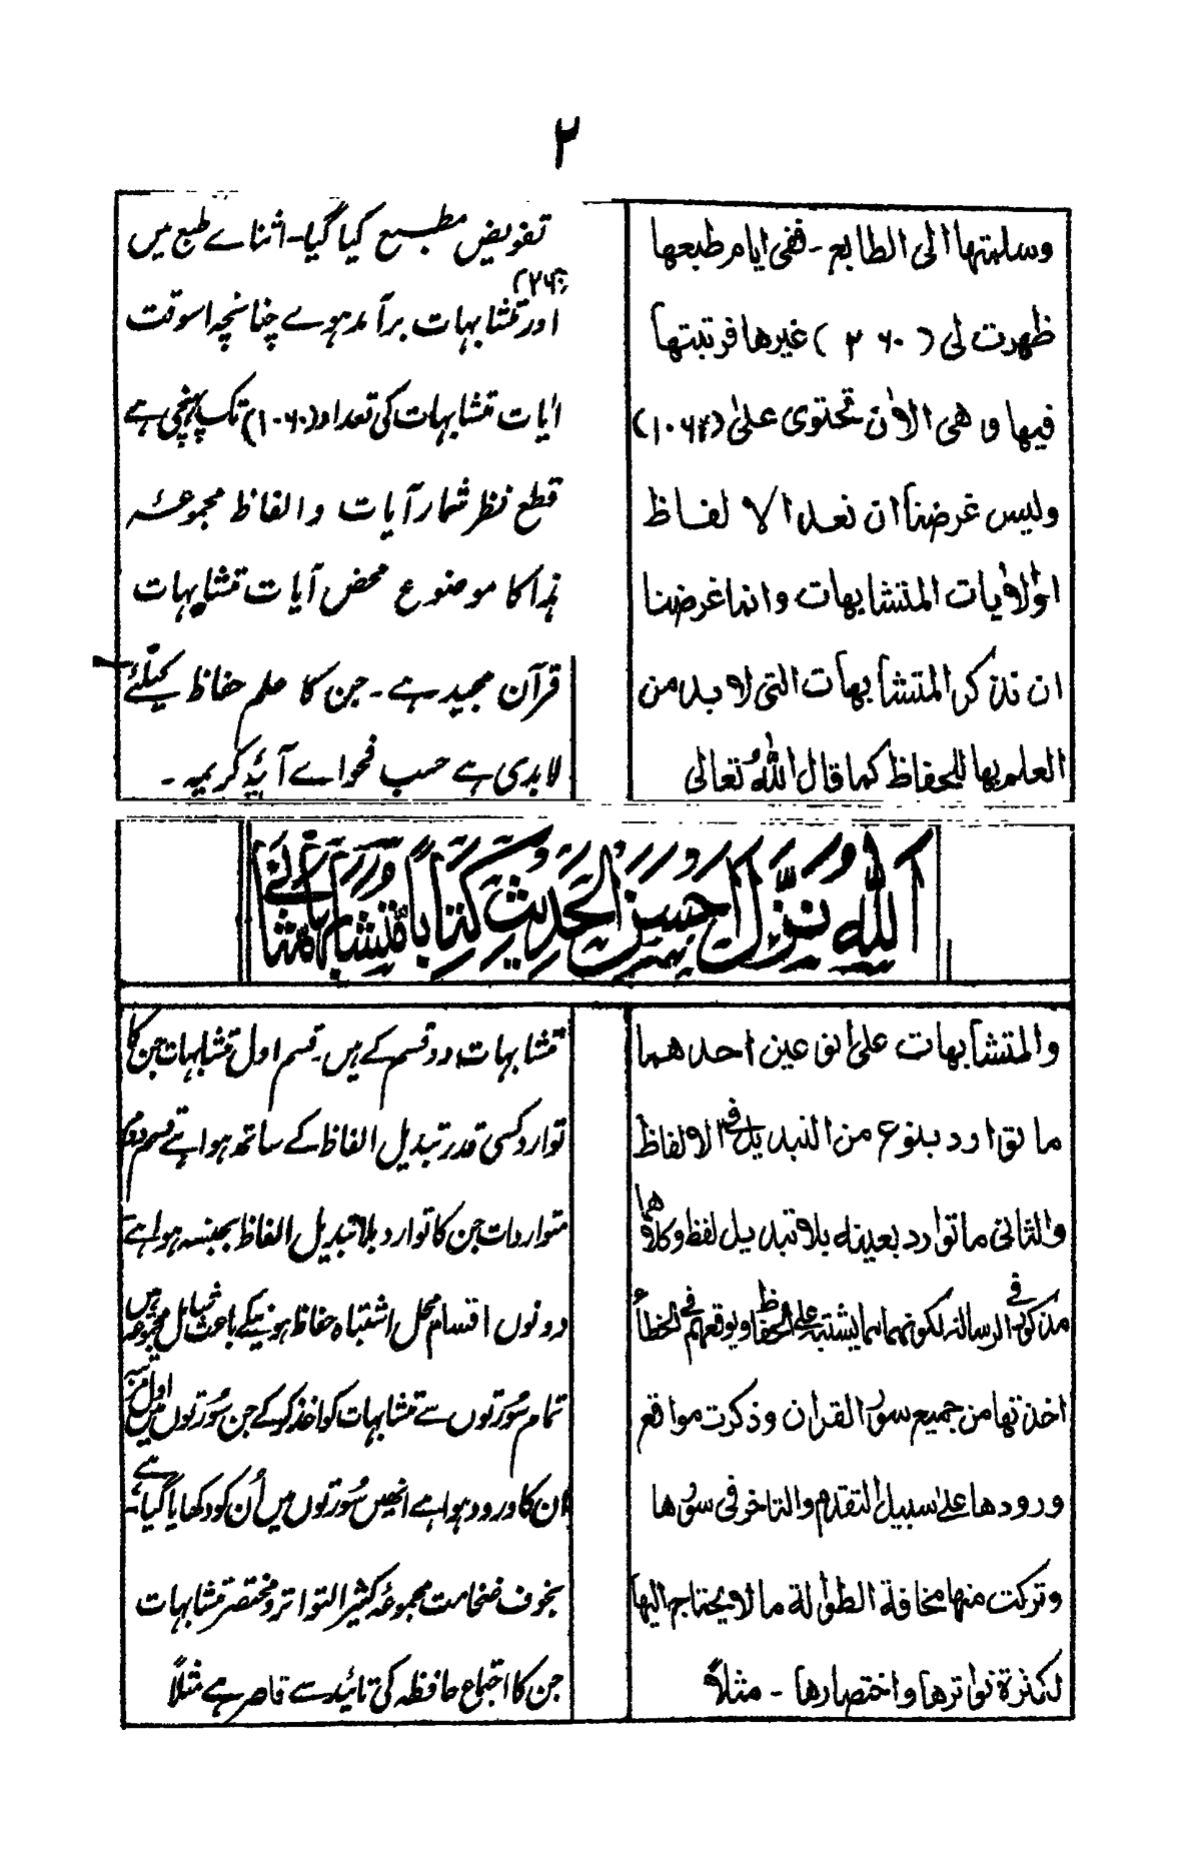 ۲
وسلمتها الى الطابع - ففى ايام طبعها
ظهرت لى (۲۶۰) غيرها فرتبتها
فيها و هى الاٰن تحتوى علىٰ (۱۰۶۴)
وليس غرضنا ان نعد الالفاظ
اولاٰيات المتشابهات وانما غرضنا
ان نذكر المتشابهات التى لا بد من
العلم بها للحفاظ كما قال اللهُ تعالى
تفویض مطبع کیا گیا۔ اثنائے طبع میں
(۲۶۰)
اور متشابہات برآمد ہوے چنانچہ اسوقت
اٰیات متشابہات کی تعداد (۱۰۶۰) تک پہنچی ہے
قطع نظر شمار آیات والفاظ مجموعۂ
ہذا کا موضوع محض آیات متشابہات
قرآن مجید ہے۔ جن کا علم حفاظ کیلئے
لابدی ہے حسب فحواے آیۂ کریمہ۔
اَللّٰهُ نَزَّلَ اَحْسَنَ الْحَدِيْثِ كِتَابًا مُّتَشَابِهًا مَّثَانِيَ
والمتشابهات علىٰ نوعين احدهما
ما توارد بنوع من التبديل فى الالفاظ
والثانى ما توارد بعينه بلا تبديل لفظ وكلاهما
مذكور فى الرسالة لكونهما مما يشتبه على الحفاظ ويوقعهم فى الخطأ
اخذتها من جميع سور القران وذكرت مواقع
ورودها علىٰ سبيل التقدم والتاخر فى سورها
وتركت منها مخافة الطوالة مالا يحتاج اليها
لكثرة تواترها واختصارها - مثلاً
متشابہات دو قسم کے ہیں۔ قسم اول متشابہات جن کا
توارد کسی قدر تبدیل الفاظ کے ساتھ ہوا ہے قسم دوم
متواردات جن کا توارد بلا تبدیل الفاظ بجنسہ ہوا ہے
دونوں اقسام محل اشتباہ حفاظ ہونیکے باعث شامل مجموعہ ہیں
تمام سُورتوں سے متشابہات کو اخذ کر کے جن سُورتوں میں اول
ان کا ورود ہوا ہے انھیں سُورتوں میں اُن کو دکھایا گیا ہے
بخوف ضخامت مجموعہ کثیر التواتر و مختصر متشابہات
جن کا اجتماع حافظہ کی تائید سے قاصر ہے مثلاً